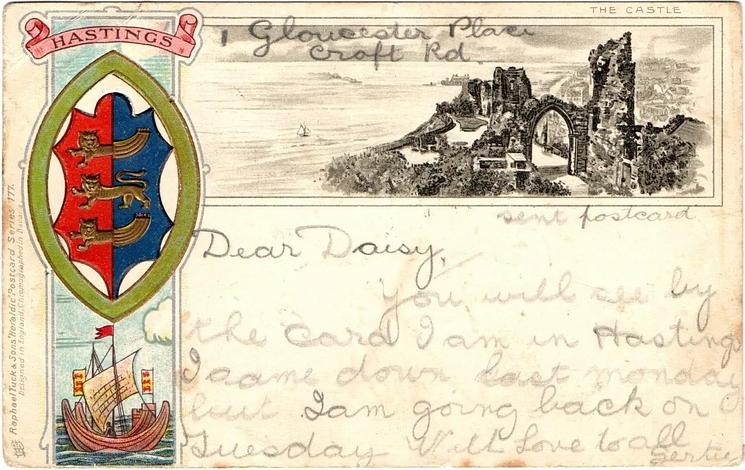 THE CASTLE
HASTINGS
1 Gloucester Place
Croft Rd.
sent postcard
Dear Daisy,
You will see by
the card I am in Hastings
I came down last monday
but I am going back on
Tuesday With Love to all
Gertie
Raphael Tuck & Sons' "Heraldic" Postcard Series 777.
Designed in England, Chromographed in Bavaria